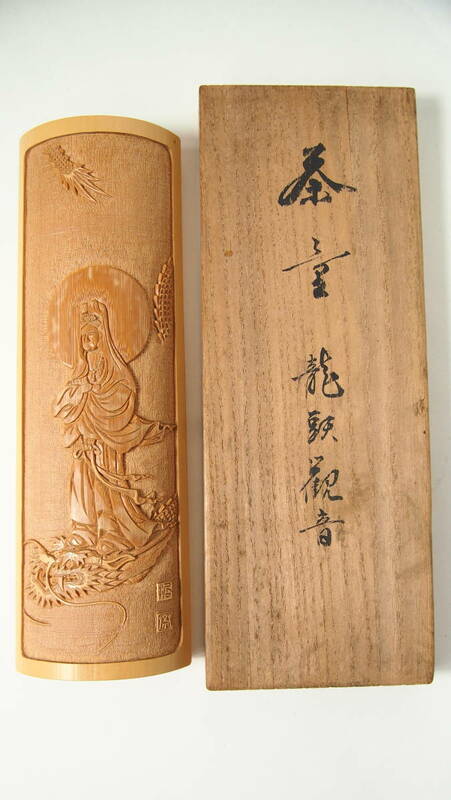 茶量
龍頭觀音